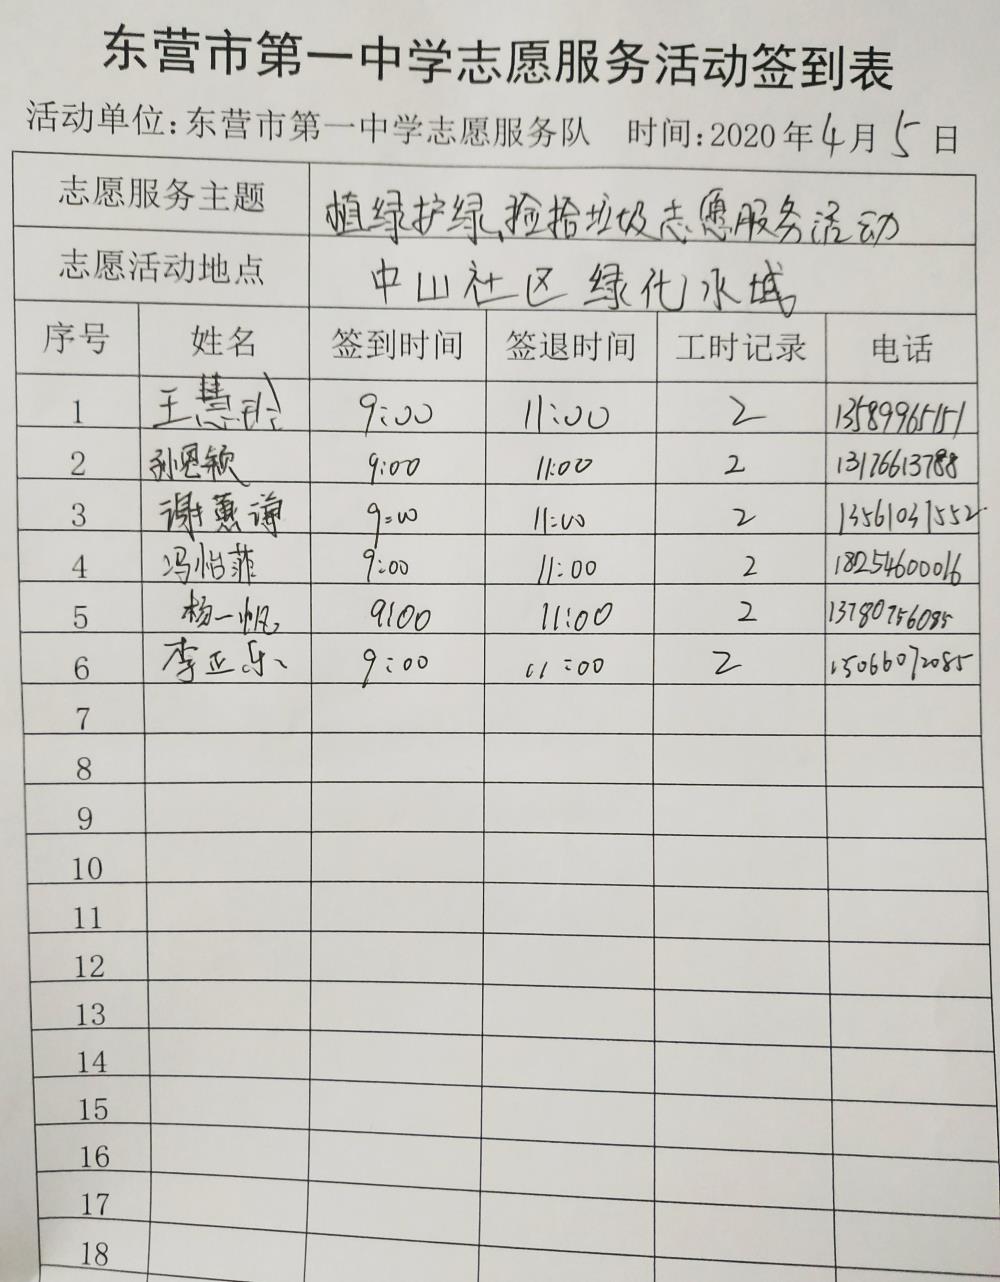 东营市第一中学志愿服务活动签到表
活动单位:东营市第一中学志愿服务队 时间:2020年4月5日
志愿服务主题 植绿护绿、捡拾垃圾志愿服务活动
志愿活动地点 中山社区绿化水域
序号 姓名 签到时间 签退时间 工时记录 电话
1 王慧玲 9:00 11:00 2 13589965151
2 孙恩颖 9:00 11:00 2 13176613788
3 谢惠谦 9:00 11:00 2 13561031552
4 冯怡菲 9:00 11:00 2 18254600016
5 杨一帆 9:00 11:00 2 13780756085
6 李正乐 9:00 11:00 2 15066072085
7
8
9
10
11
12
13
14
15
16
17
18